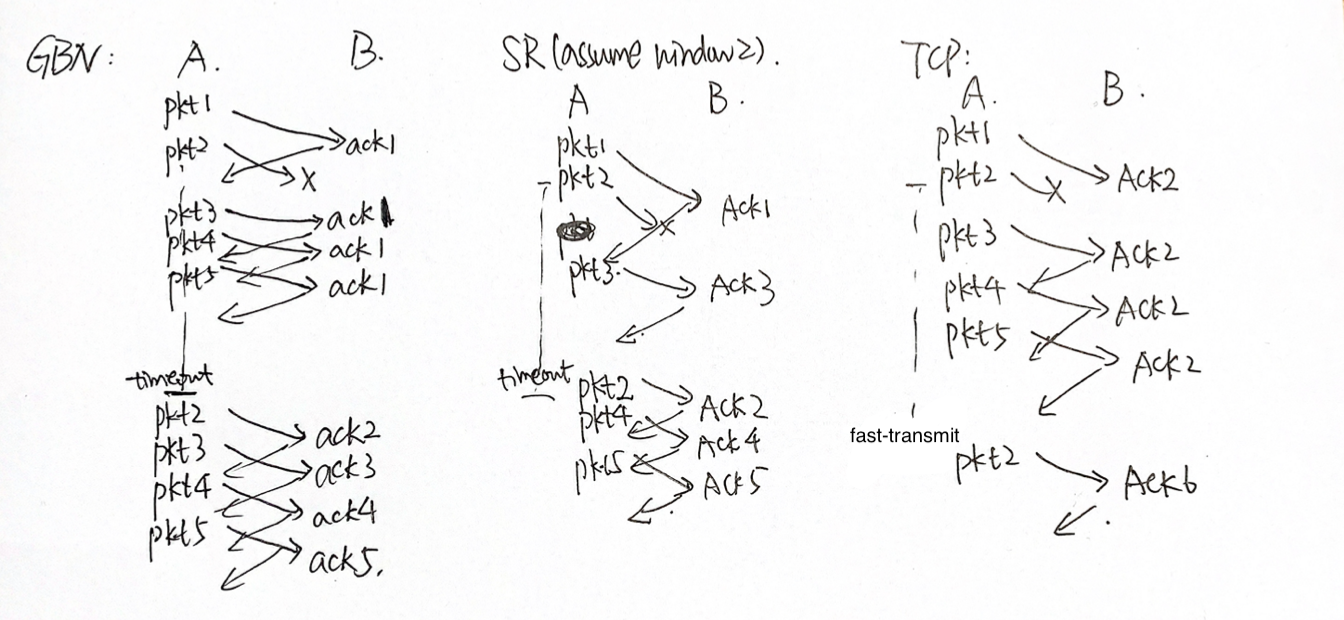 GBN:
A.
B.
pkt1
pkt2
ack1
X
pkt3
ack1
pkt4
ack1
pkt5
ack1
timeout
pkt2
ack2
pkt3
ack3
pkt4
ack4
pkt5
ack5.
SR (assume window 2).
A
B.
pkt1
pkt2
Ack1
x
pkt3.
Ack3
timeout
pkt2
Ack2
pkt4
Ack4
pkt5
Ack5
TCP:
A.
B.
pkt1
pkt2
Ack2
x
pkt3
Ack2
pkt4
Ack2
pkt5
Ack2
fast-transmit
pkt2
Ack6